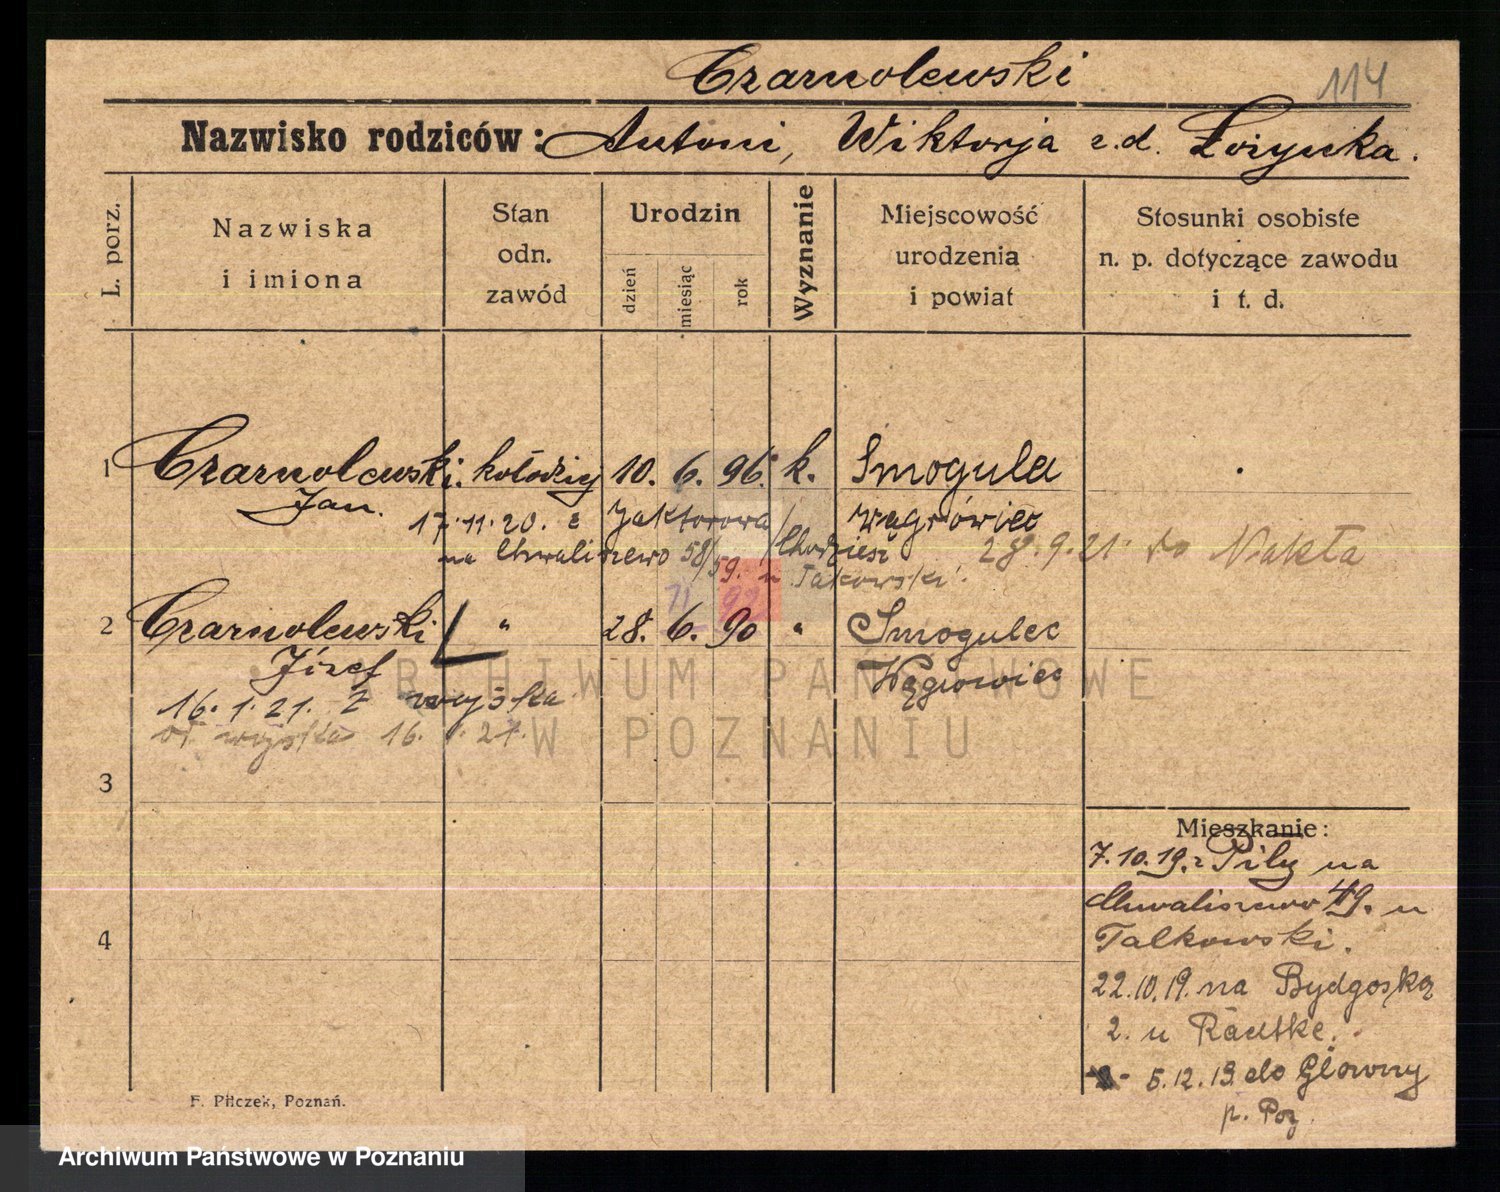 Czarnolewski 114
Nazwisko rodziców: Antoni, Wiktorja z.d. Łożynka.
L. porz.
Nazwiska
i imiona
Stan
odn.
zawód
Urodzin
dzień
miesiąc
rok
Wyznanie
Miejscowość
urodzenia
i powiat
Stosunki osobiste
n. p. dotyczące zawodu
i t. d.
1 Czarnolewski kołodziej 10. 6. 96. k. Smogula
Jan.
Wągrówiec
17.11.20. z Jaktorowa / Chodzież
na Chwaliszewo 58/59. u Takowski.
28.9.21. do Nakła
71 92
2 Czarnolewski " 28. 6. 90 " Smogulec
Józef Wągrowiec
16.1.21. z wojska
od wojska 16. 1. 21.
3
4
Mieszkanie:
7.10.19. z Piły na
Chwaliszewo 49. u
Talkowski.
22.10.19. na Bydgoską
2. u Radtke.
5.12.19. do Główny
p. Poz.
F. Pilczek, Poznań.
ARCHIWUM PAŃSTWOWE
W POZNANIU
Archiwum Państwowe w Poznaniu